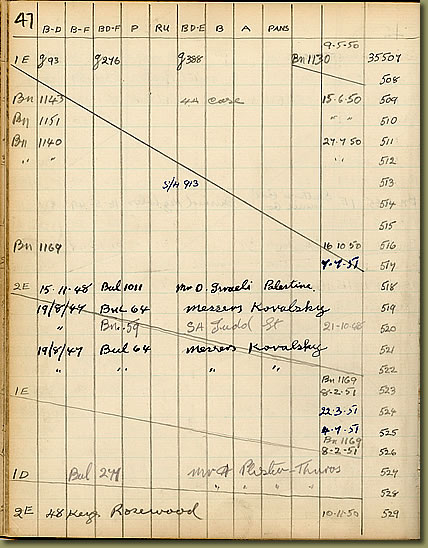 47 B-D B-F BD-F P RU BD-E B A PANS
9-5-50
1E g93 g276 g388 Bn 1130 35507
508
Bn 1143 44 case 15.6.50 509
Bn 1151 " " 510
Bn 1140 27.7.50 511
" " " " 512
S/H 913 513
514
515
Bn 1169 16 10 50 516
7.7.51 517
2E 15.11.48 Bul 1011 Mr D. Israeli Palestine 518
19/8/47 Bul 64 Messers Kovalsky 519
" Bn. 59 SA Judd St 21-10-48 520
19/8/47 Bul 64 Messers Kovalsky 521
" " " " " 522
Bn 1169
1E 8-2-51 523
22.3.51 524
4.7.51 525
Bn 1169
8-2-51 526
1D Bul 271 Mr A 527
" " " " 528
2E 48 Keys Rosewood 10-11-50 529